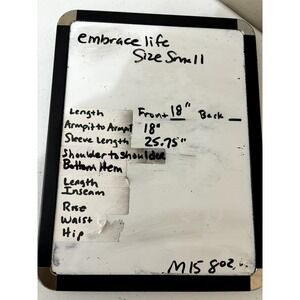 embrace life
Size Small
Length Front 18" Back _
Armpit to Armpit 18"
Sleeve Length 25.75"
Shoulder to shoulder
Bottom Hem
Length
Inseam
Rise
Waist
Hip